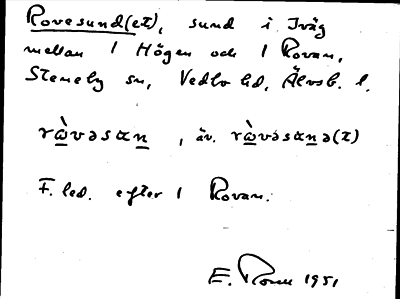 Rovesund(et), sund i Iväg
mellan 1 Högen och 1 Rovan,
Steneby sn, Vedbo hd, Älvsb. l.
rὼ̲vəsαn̲ , äv. rὼ̲vəsαn̲ə(t)
F. led. efter 1 Rovan.
E. 1951